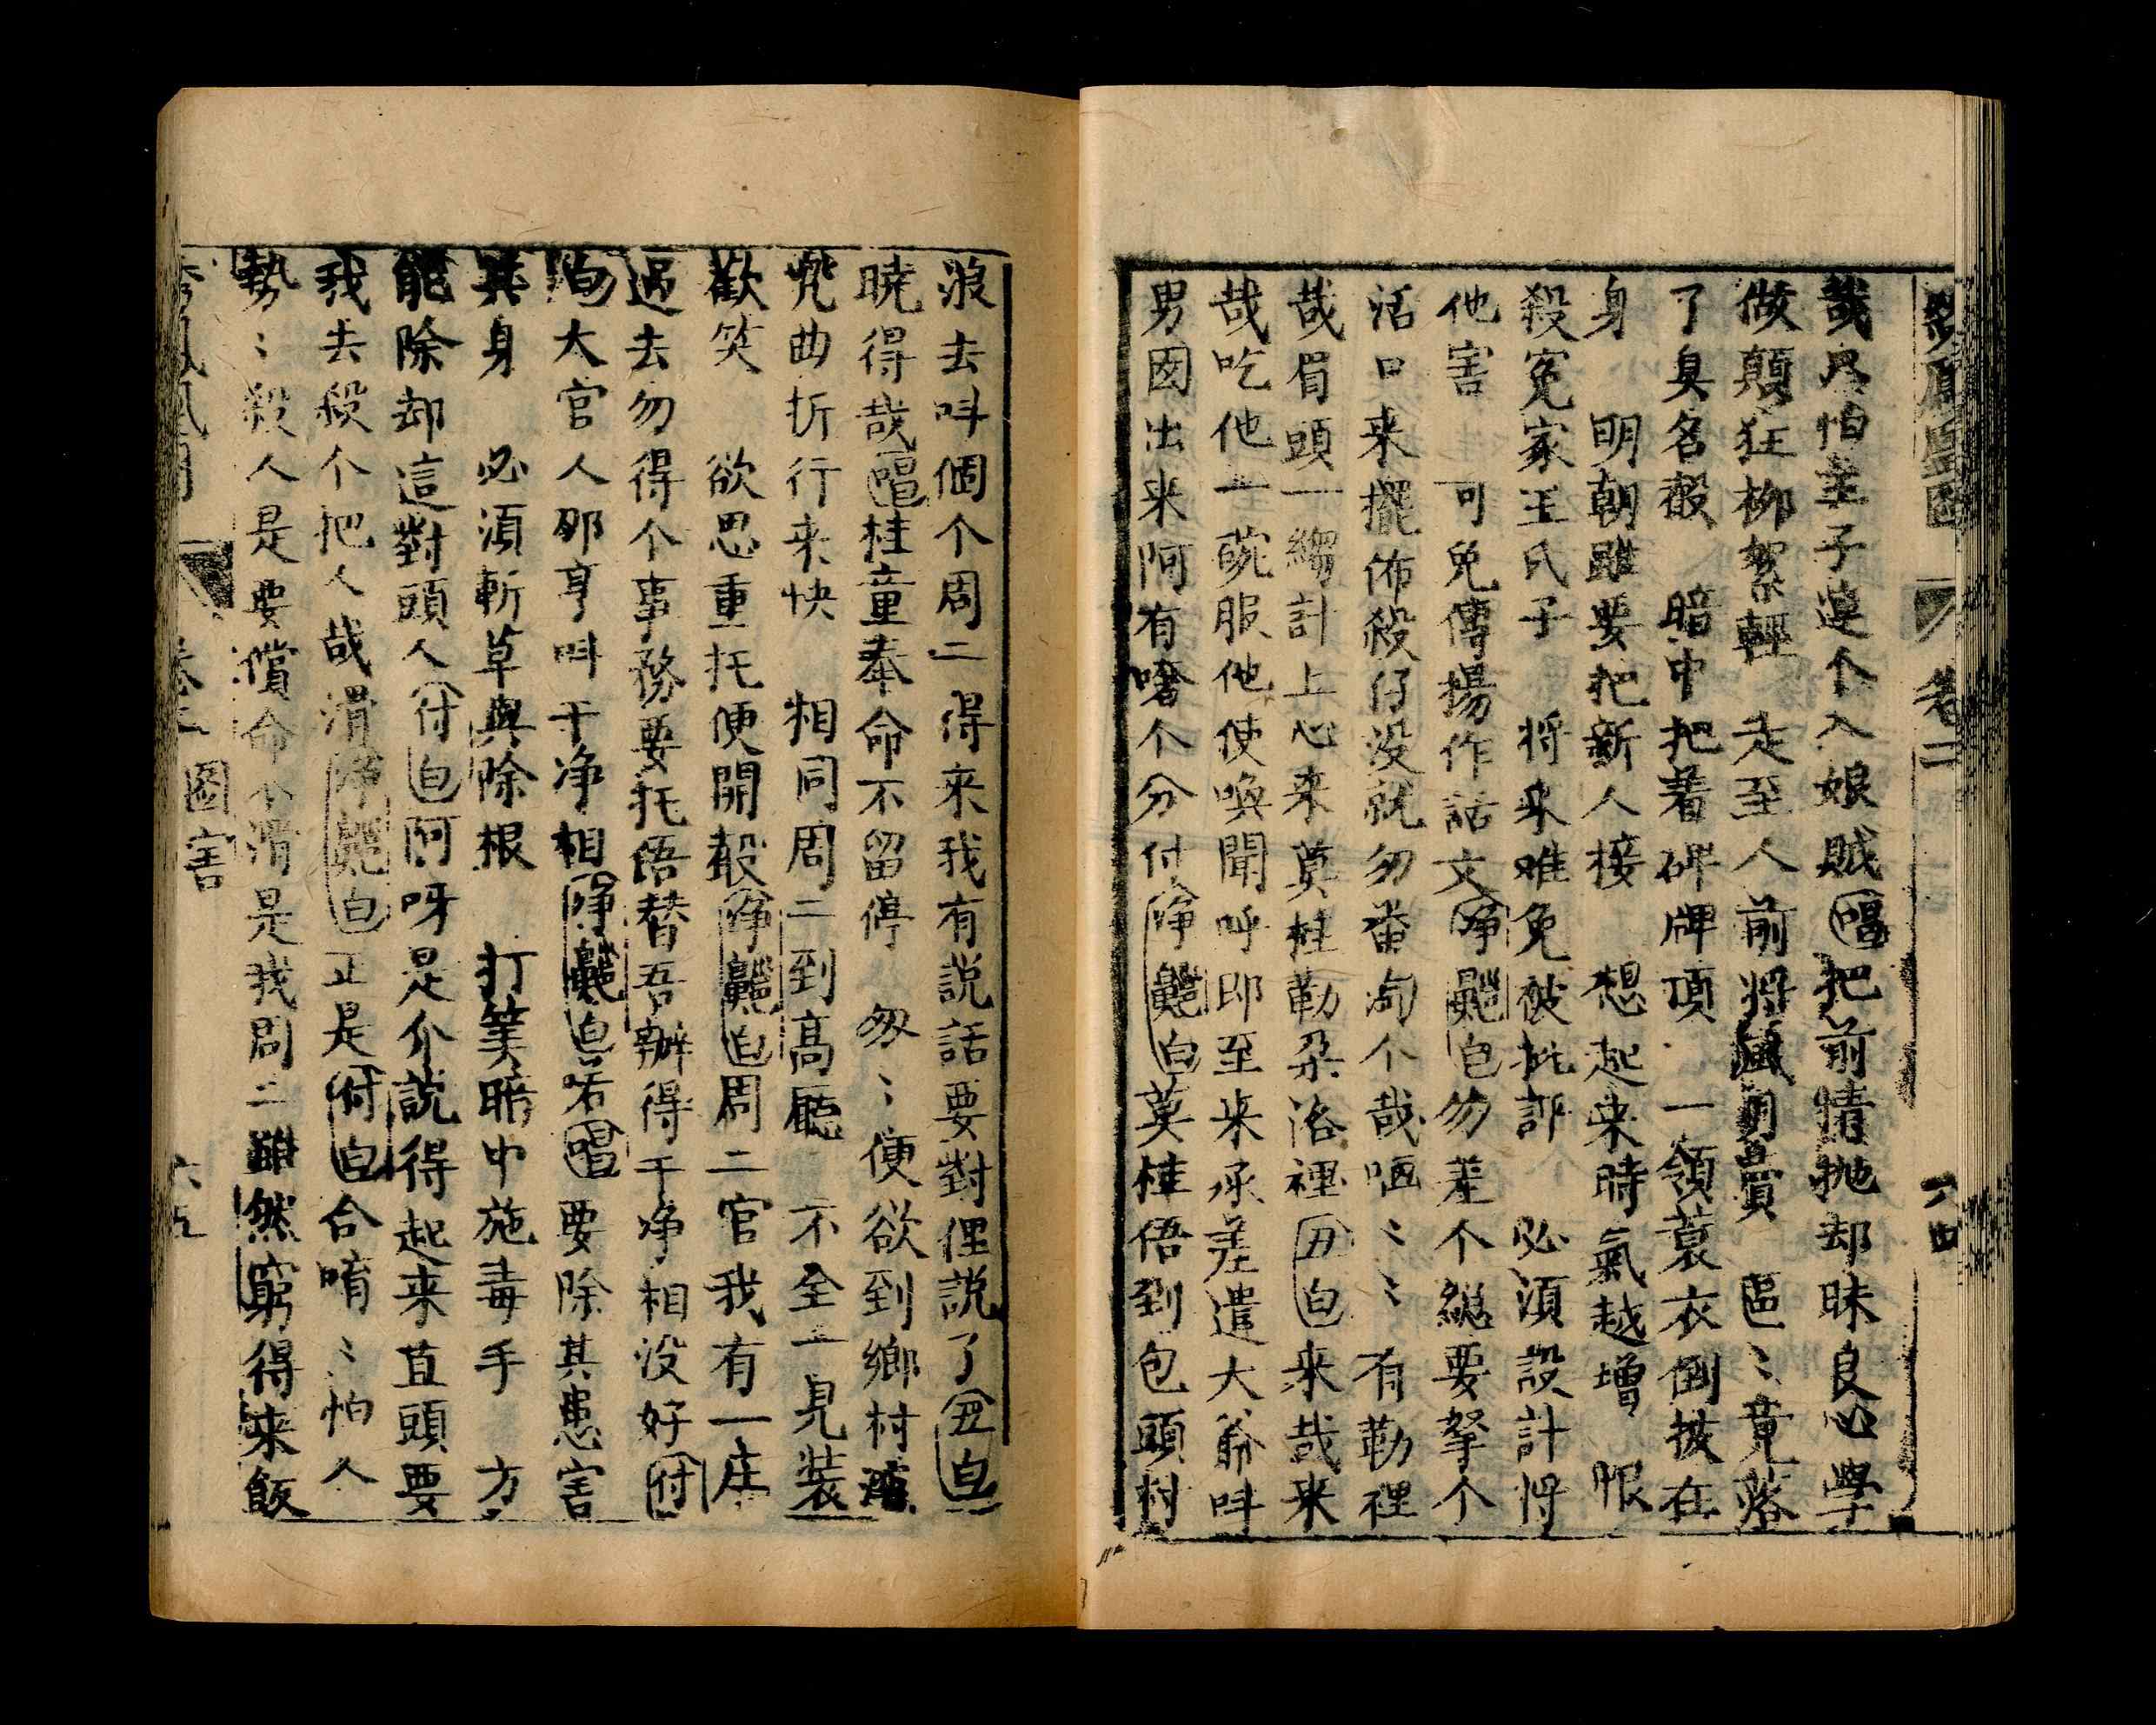 鳳凰圖 卷二 六四
哉只怕主子這个入娘賊唱把前情抛却昧良心學
做顛狂柳絮輕 走至人前將 區〻竟落
了臭名聲 暗中把着碑牌頂 一領蓑衣倒披在
身 明朝雖要把新人接 想起来時氣越增 恨
殺冤家王氏子 将来难免被批評 必須設計将
他害 可免傳揚作話文净 白勿差个緫要拏个
活口来擺佈殺仔没就勿畨 个哉哂〻〻有勒裡
哉眉頭一縐計上心来莫桂勒朶洛裡丑白来哉来
哉吃他一碗服他使喚聞呼即至来承差遣大爺呌
男囡出来阿有啥个分付净 白莫桂俉到包頭村
浪去呌個个周二得来我有説話要對俚説了丑白
曉得哉唱桂童奉命不留停 匆〻便欲到鄉村
兠曲折行来快 相同周二到高廳 不全一見装
歡笑 欲思重托便開聲净 白周二官我有一庄
過去勿得个事務要托俉替吾辦得干净相没好付
白大官人那亨呌干净相净 白喏唱要除其患害
其身 必須斬草與除根 打筭暗中施毒手 方
能除却這對頭人付白阿呀是介説得起来直頭要
我去殺个把人哉滑净 白正是付白合唷〻怕人
勢〻殺人是要償命个滑是我周二雖然窮得来飯
鳳凰圖 卷二 圖害 六五